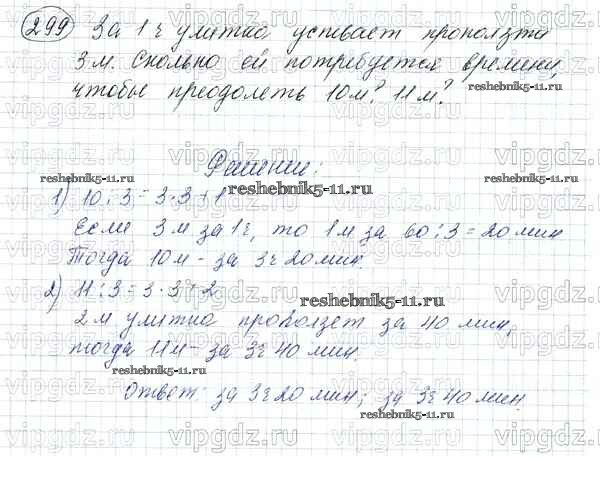 299 За 1 ч улитка успевает проползти
3 м. Сколько ей потребуется времени,
чтобы преодолеть 10 м? 11 м?
reshebnik5-11.ru
Решение:
reshebnik5-11.ru
reshebnik5-11.ru
reshebnik5-11.ru
1) 10 : 3 = 3 · 3 + 1
Если 3 м за 1 ч, то 1 м за 60 : 3 = 20 мин
Тогда 10 м - за 3 ч 20 мин.
2) 11 : 3 = 3 · 3 + 2
reshebnik5-11.ru
2 м улитка проползет за 40 мин,
тогда 11 м - за 3 ч 40 мин.
Ответ: за 3 ч 20 мин; за 3 ч 40 мин.
reshebnik5-11.ru
vipgdz.ru